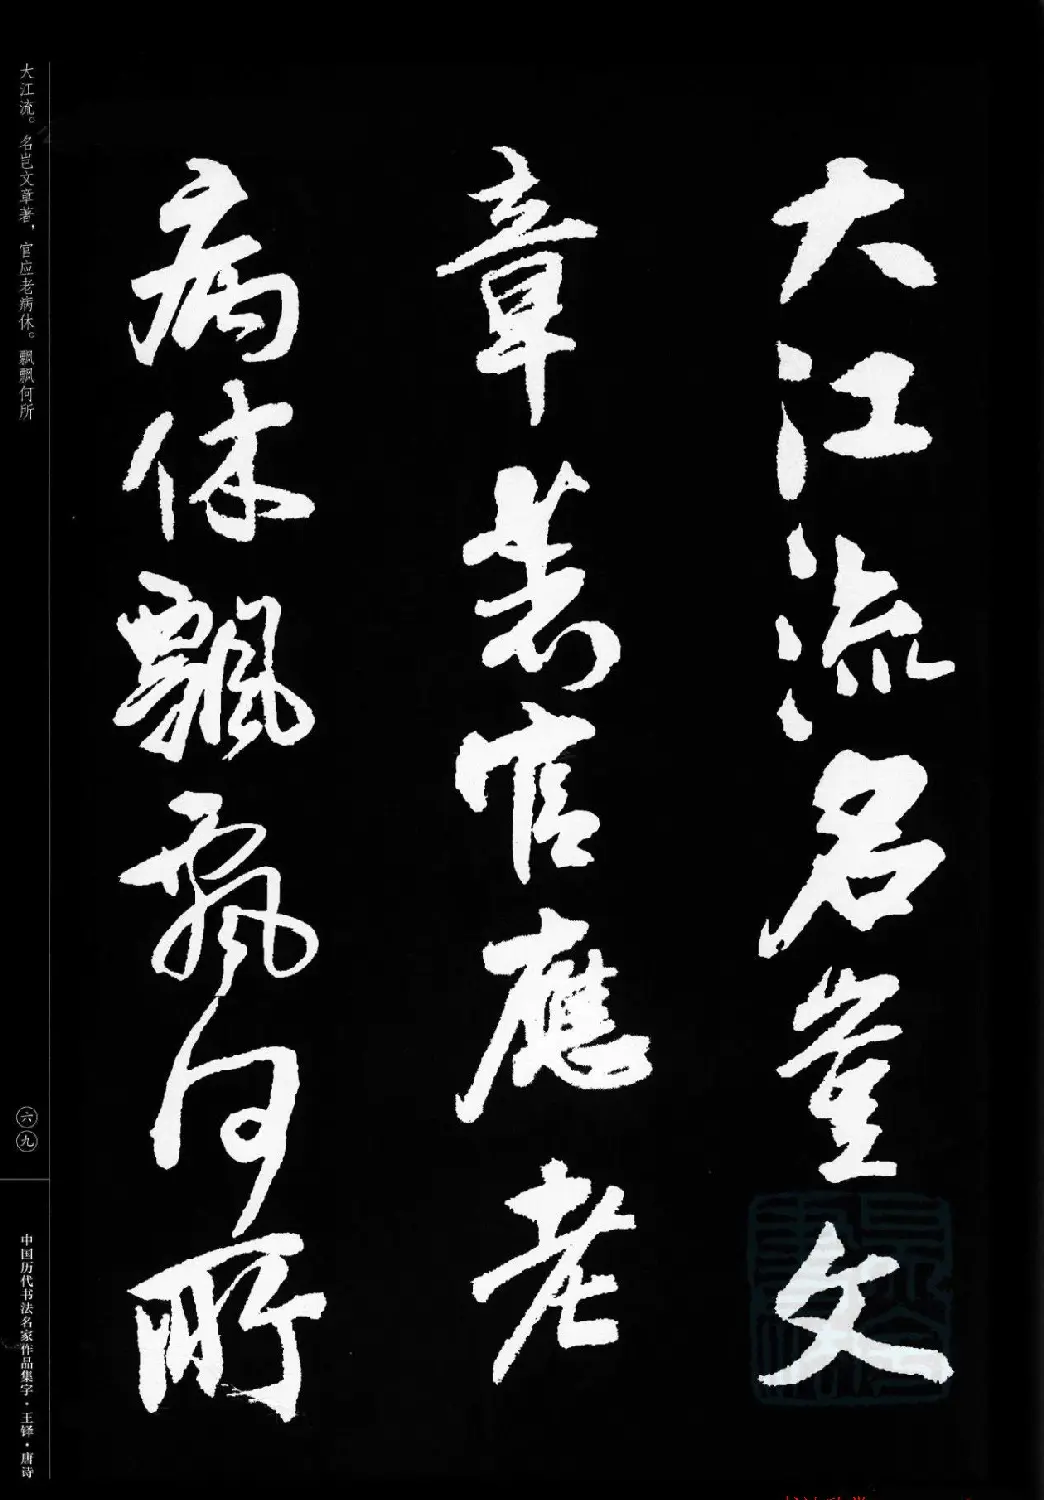 大江流名豈文
章著官應老
病休飄飄何所
大江流。名岂文章著，官应老病休。飘飘何所
六九
中国历代书法名家作品集字·王铎·唐诗